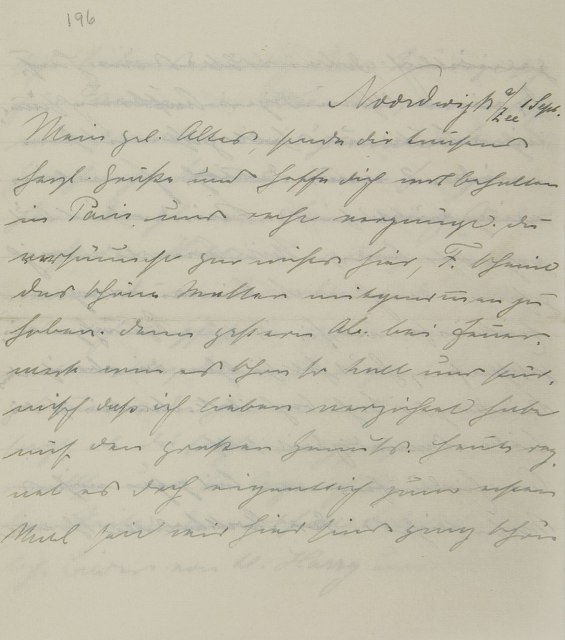 196
Noordwijk a/Zee 1 Sept.
Mein gel. Alter, sende dir tausend
herzl. Grüße und hoffe dich wohlbehalten
in Paris und recht vergnügt. Du
versäumst gar nichts hier, F. scheint
das schöne Wetter mitgenommen zu
haben. denn gestern Ab. bei Feuer-
werk war es schon so kalt und stür-
misch daß ich lieber verzichtet habe
auf den großen Genuß. Heute reg-
net es doch eigentlich zum ersten
Mal seit wir hier sind ganz schön